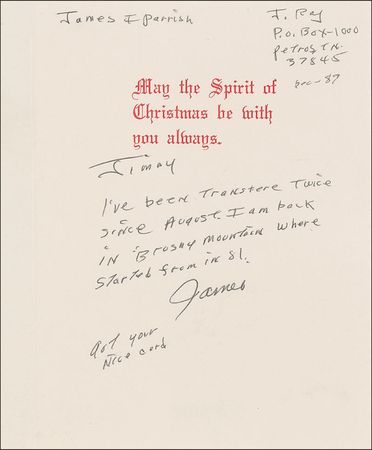 James E Parrish
J. Ray
P.O. Box-1000
Petros TN.
37845
Dec-87
May the Spirit of
Christmas be with
you always.
Jimmy
I've been Transfere Twice
since August I am back
in Brushy Mountain where
started from in 81.
James
Got your
Nice card